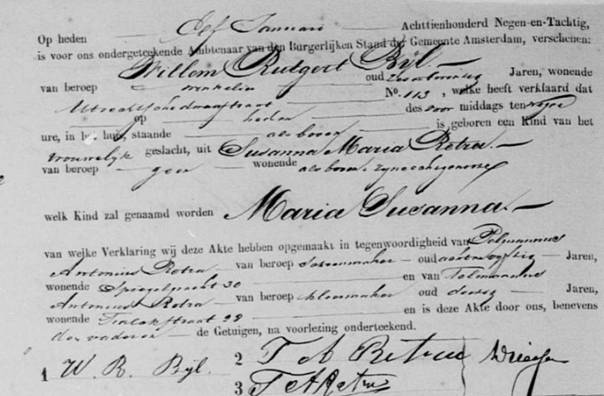 Op heden Elf Januari Achttienhonderd Negen-en-Tachtig,
is voor ons ondergeteekende Ambtenaar van den Burgerlijken Stand der Gemeente Amsterdam, verschenen:
Willem Rutgert Bijl
van beroep winkelier oud Jaren, wonende
Utrechtschedwarsstraat No. 113, welke heeft verklaard dat
op heden des voor middags ten
ure, in het huis, staande als boven is geboren een Kind van het
vrouwelijk geslacht, uit Susanna Maria Retra
van beroep geen wonende als boven, zijne echtgenoote
welk Kind zal genaamd worden Maria Susanna.
van welke Verklaring wij deze Akte hebben opgemaakt in tegenwoordigheid van
Antonius Retra van beroep oud Jaren,
wonende Spiegelgracht 30 en van
Antonius Retra van beroep oud dertig Jaren,
wonende 28 en is deze Akte door ons, benevens
den vader en de Getuigen, na voorlezing onderteekend.
1 W. R. Bijl. 2 T A Retra
3 T A Retra